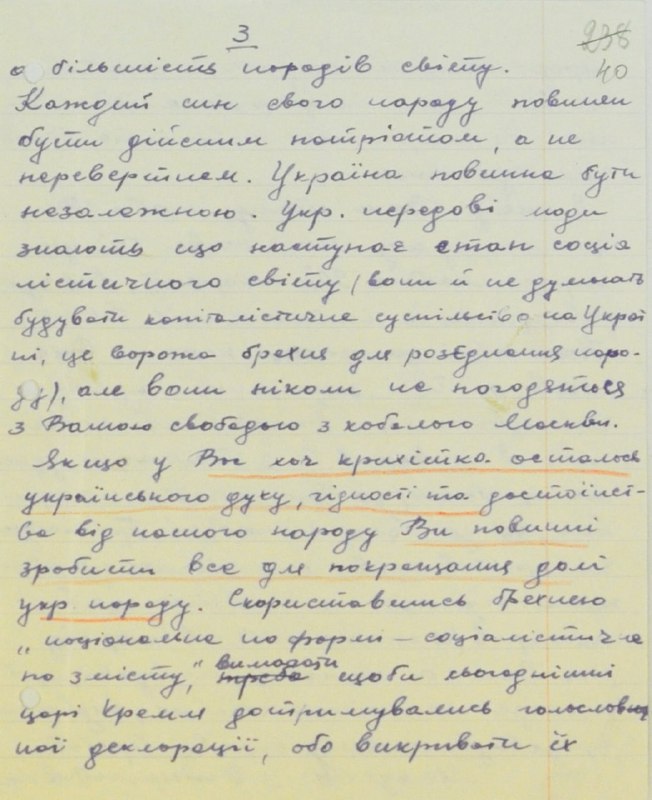 3
238
40
а більшість народів світу.
Каждий син свого народу повинен
бути дійсним патріотом, а не
перевертнем. Україна повинна бути
незалежною. Укр. передові люди
знають що наступає стан соція
лістичного світу (вони й не думають
будувати капіталістичне суспільство на Украї
ні, це ворожа брехня для розєднання наро-
ду), але вони ніколи не погодяться
з Вашою свободою з кобелого Москви.
Якщо у Вас хоч крихістка осталось
українського духу, гідності та достоїнст-
ва від нашого народу Ви повинні
зробити все для покращання долі
укр. народу. Скориставшись брехнею
"національна по формі – соціалістична
по змісту," вимагати
треба щоби сьогоднішні
царі Кремля дотримувались голослов
ної декларації, або викривати їх